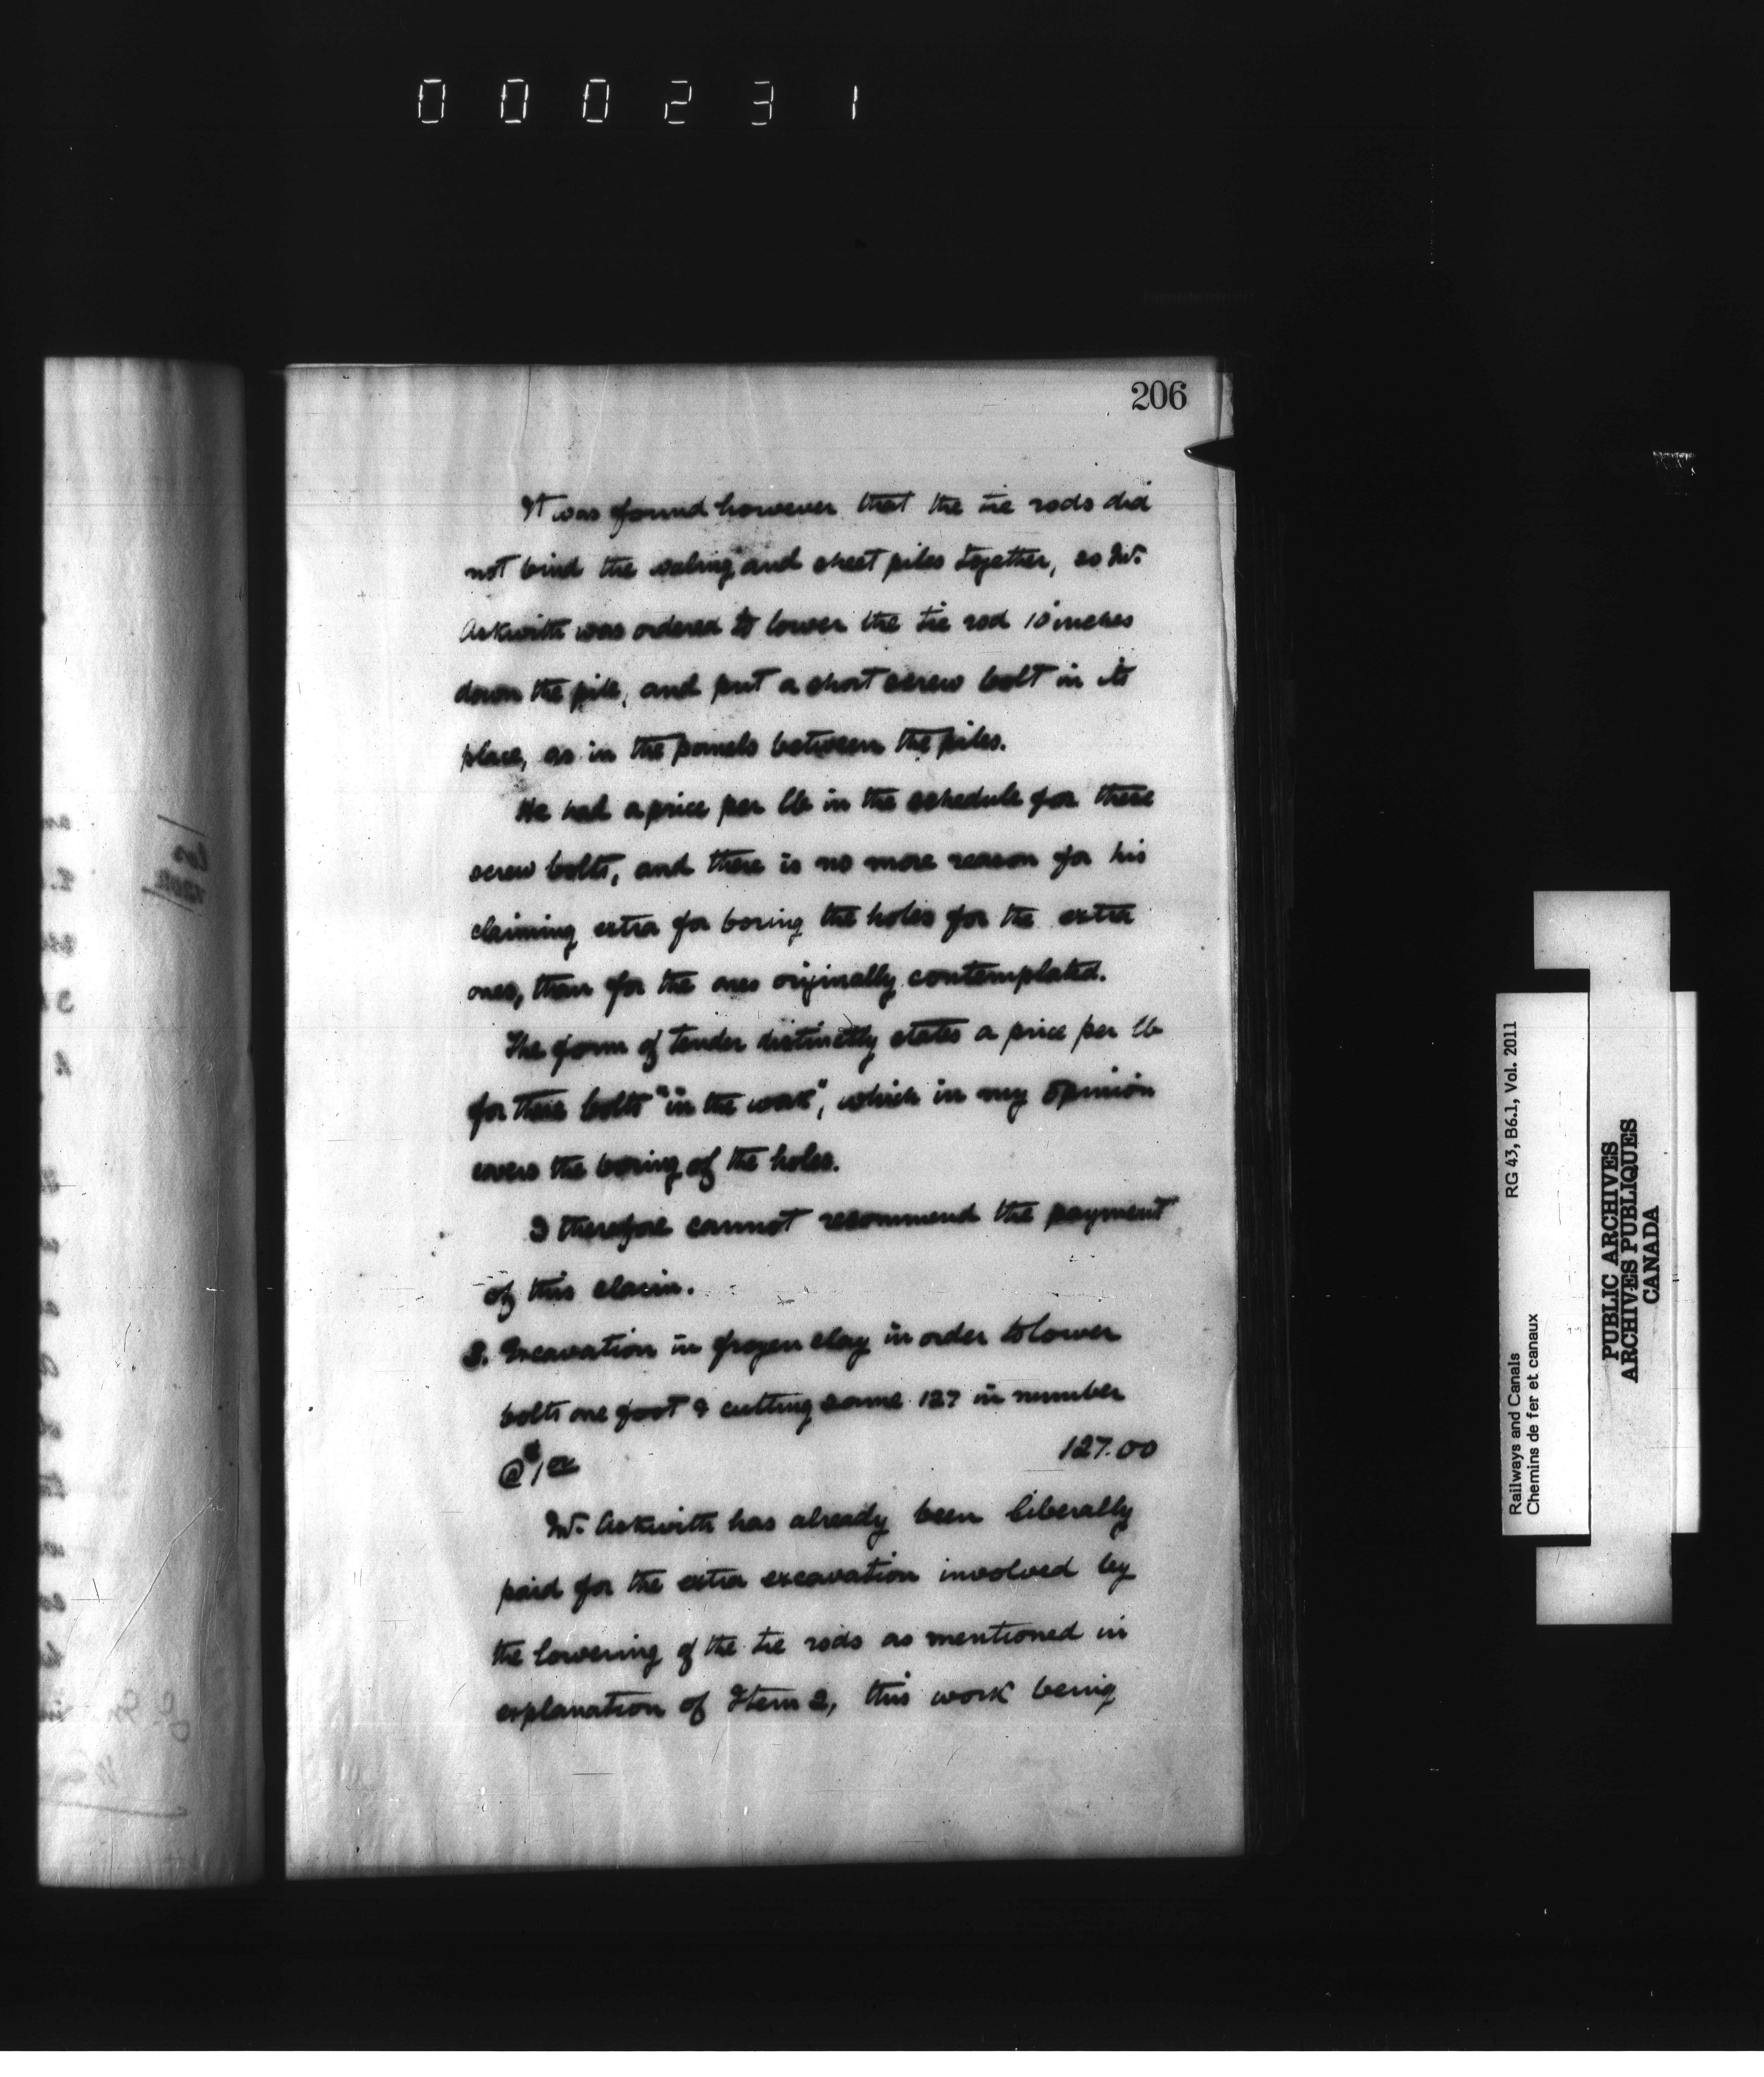 000231
206
It was found however that the tie rods did
not bind the waling and sheet piles together, so Mr.
Askwith was ordered to lower the tie rod 10 inches
down the pile, and put a short screw bolt in its
place, as in the panels between the piles.
He had a price per lb in the schedule for these
screw bolts, and there is no more reason for his
claiming extra for boring the holes for the extra
ones, than for the ones originally contemplated.
The form of tender distinctly states a price per lb
for these bolts "in the work", which in my opinion
covers the boring of the holes.
I therefore cannot recommend the payment
of this claim.
3. Excavation in frozen clay in order to lower
bolts one foot & cutting same 127 in number
@ $1 00 127.00
Mr. Askwith has already been liberally
paid for the extra excavation involved by
the lowering of the tie rods as mentioned in
explanation of Item 2, this work being
Railways and Canals RG 43, B6.1, Vol. 2011
Chemins de fer et canaux
PUBLIC ARCHIVES
ARCHIVES PUBLIQUES
CANADA